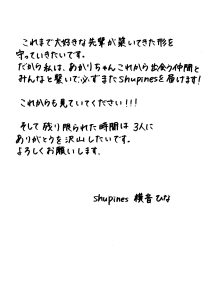 これまで大好きな先輩が築いてきた形を
守っていきたいです。
だから私は、あかりちゃんこれから出会う仲間と
みんなと繋いで必ずまたshupinesを届けます!
これからも見ていてください!!!
そして残り限られた時間は3人に
ありがとうを沢山したいです。
よろしくお願いします。
shupines 横音ひな